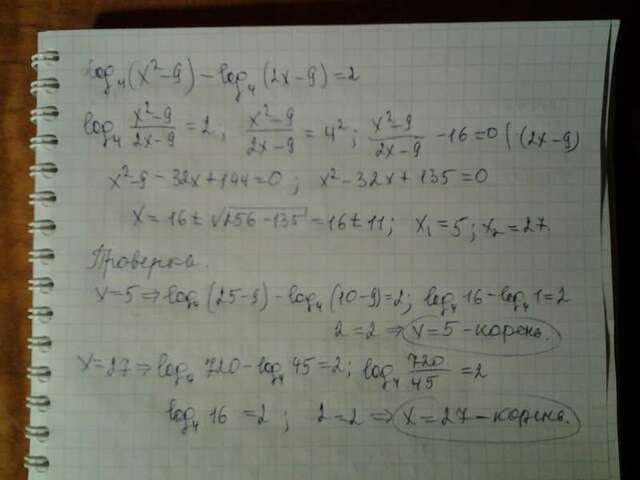 log₄(x²-9) - log₄(2x-9) = 2
log₄ (x²-9)/(2x-9) = 2; (x²-9)/(2x-9) = 4²; (x²-9)/(2x-9) - 16 = 0 | (2x-9)
x²-9-32x+144=0; x²-32x+135=0
x=16±√(256-135)=16±11; x₁=5; x₂=27.
Проверка.
x=5⇒log₄(25-9)-log₄(10-9)=2; log₄16-log₄1=2
2=2⇒x=5-корень.
x=27⇒log₄720-log₄45=2; log₄ 720/45 =2
log₄16=2; 2=2⇒x=27-корень.